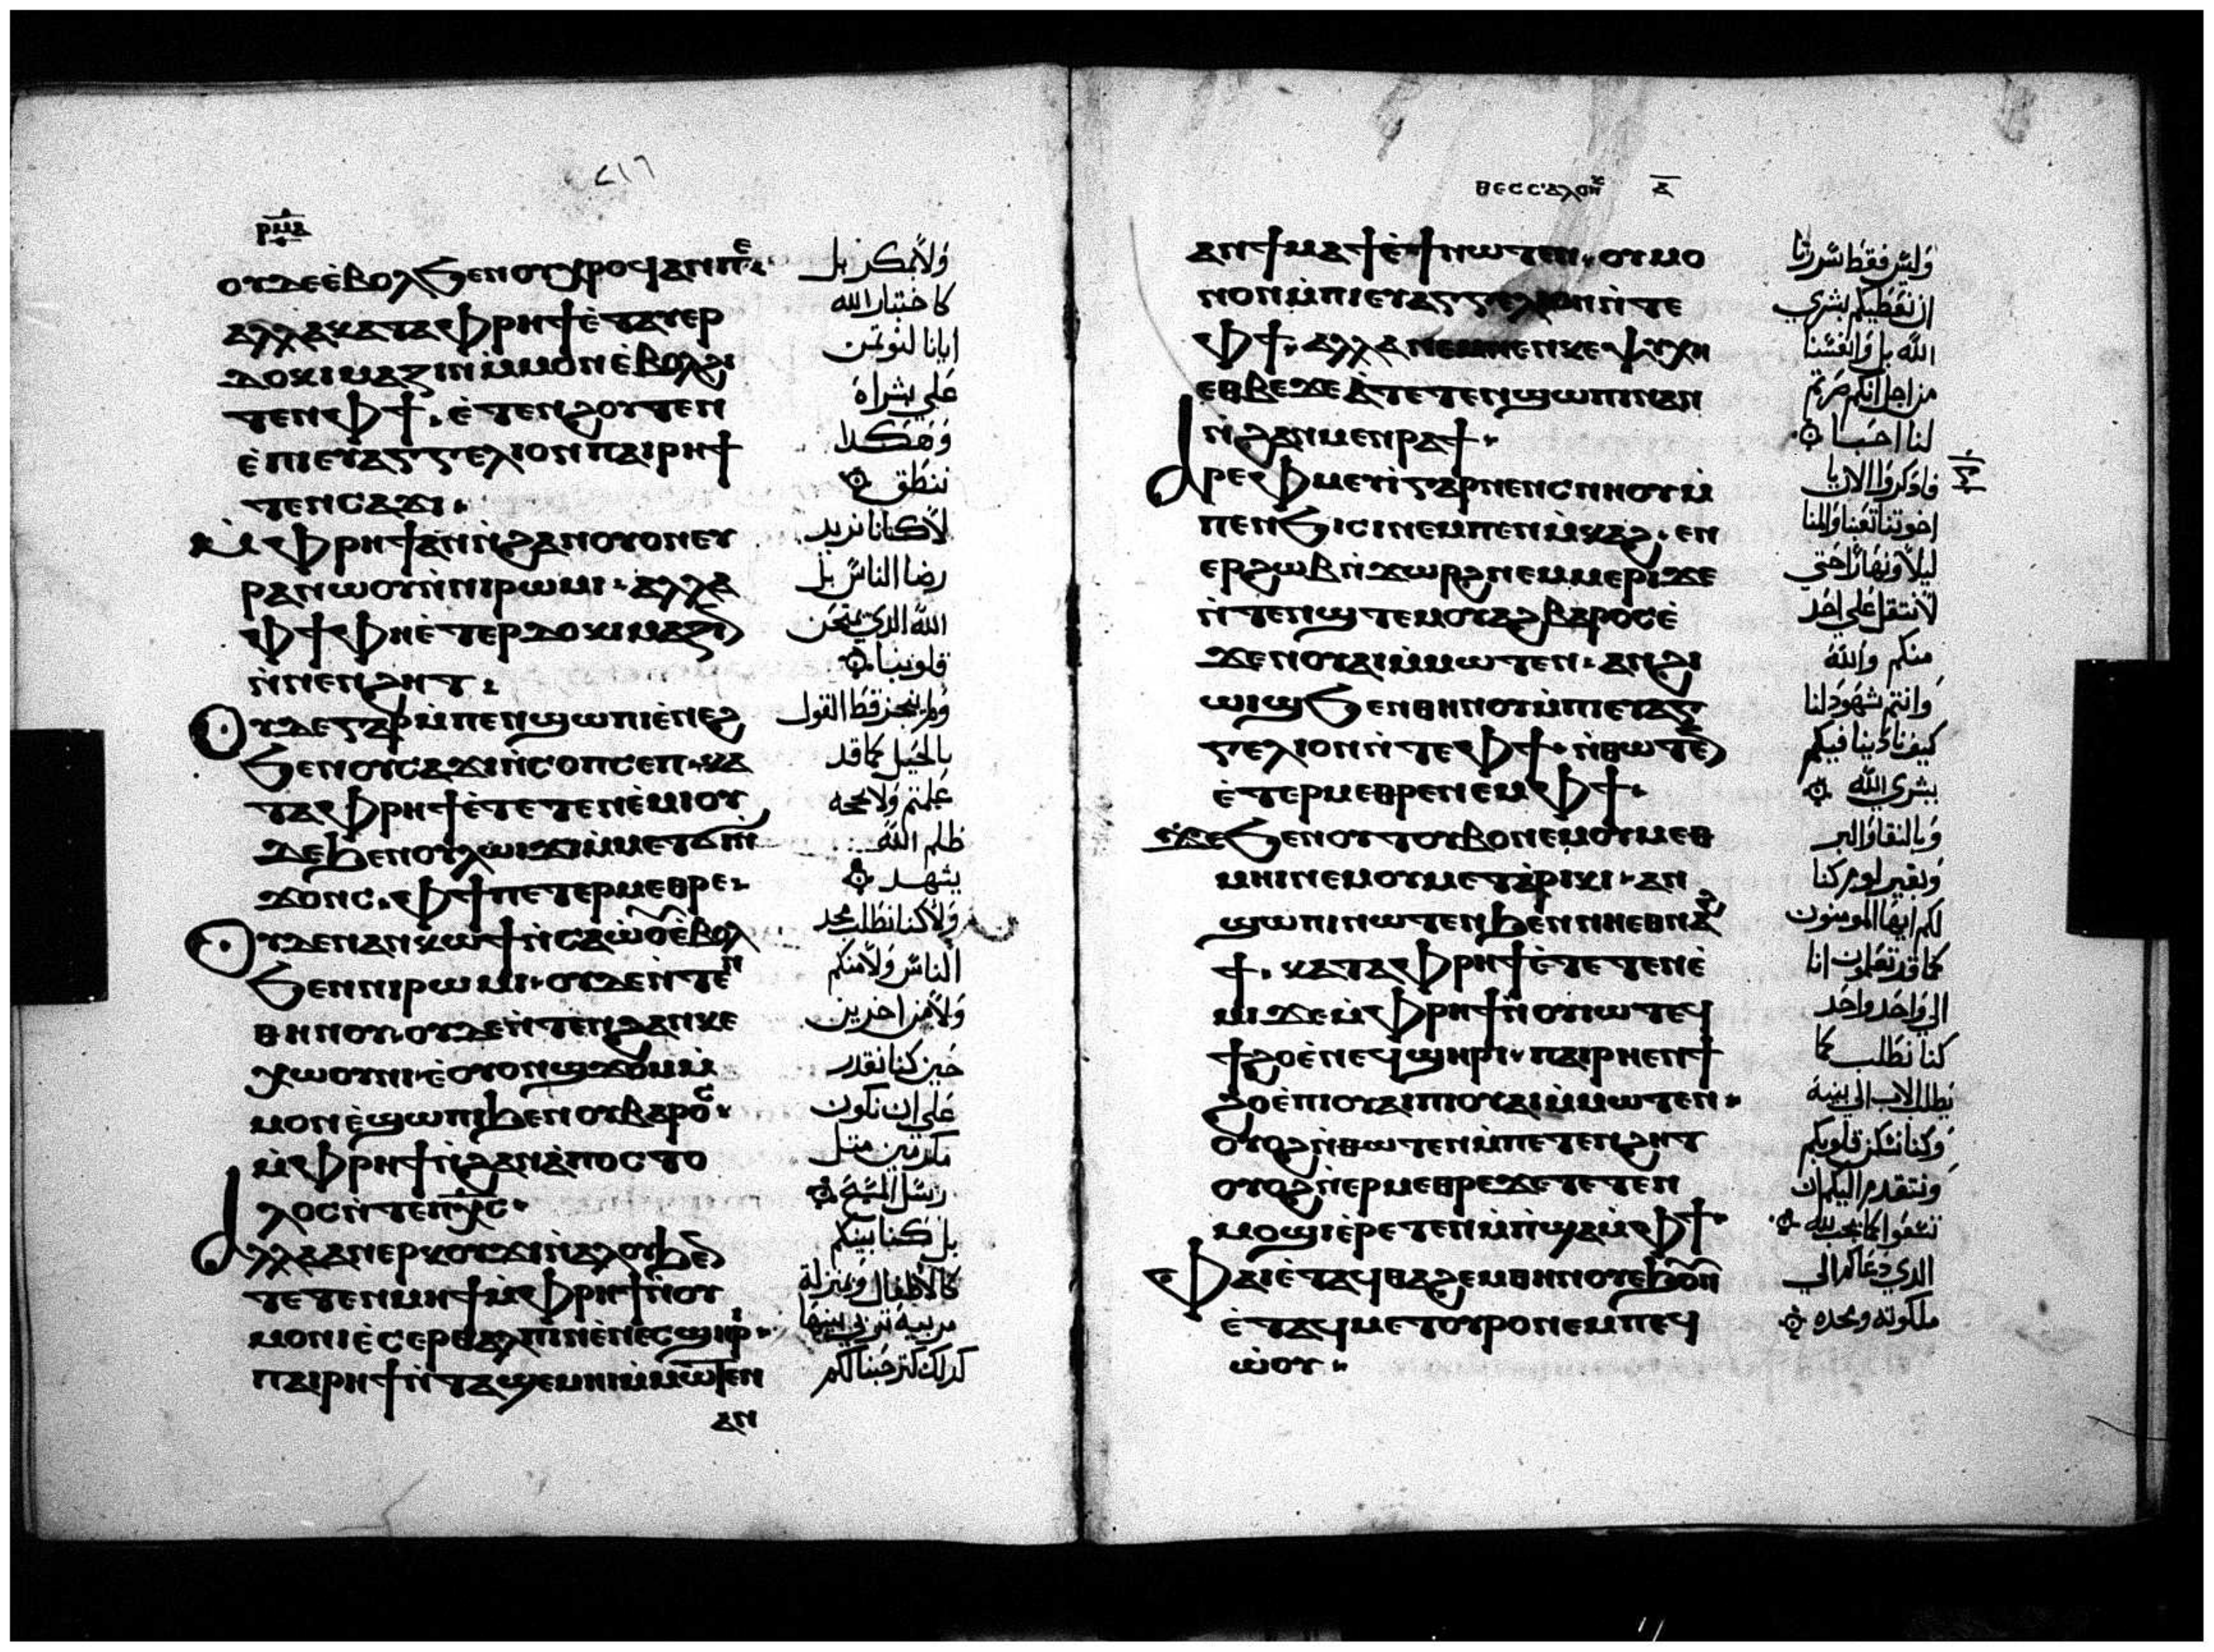 ⲣⲙⲁ
ⲟⲩⲇⲉ ⲉ̀ⲃⲟⲗϧⲉⲛ ⲟⲩⲭⲣⲟϥ ⲁⲛ ⲡⲉ
ⲁⲗⲗⲁ ⲕⲁⲧⲁ ⲫⲣⲏϯ ⲉ̀ⲧⲁⲩⲉⲣ
ⲇⲟⲕⲓⲙⲁⲍⲓⲛ ⲙ̀ⲙⲟⲛ ⲉ̀ⲃⲟⲗϩⲓ
ⲧⲉⲛ ⲫϯ. ⲉ̀ⲧⲉⲛϩⲟⲩⲧⲉⲛ
ⲉ̀ⲡⲓⲉⲩⲁⲅⲅⲉⲗⲓⲟⲛ ⲡⲁⲓⲣⲏϯ
ⲧⲉⲛⲥⲁϫⲓ.
ⲙ̀ⲫⲣⲏϯ ⲁⲛ ⲛ̀ϩⲁⲛⲟⲩⲟⲛ ⲉⲩ
ⲣⲁⲛⲱⲟⲩ ⲛ̀ⲛⲓⲣⲱⲙⲓ. ⲁⲗⲗⲁ
ⲫϯ ⲫⲏ ⲉ̀ⲧⲉⲣⲇⲟⲕⲓⲙⲁⲍⲓⲛ
ⲛ̀ⲛⲉⲛϩⲏⲧ.
ⲟⲩⲇⲉ ⲅⲁⲣ ⲙ̀ⲡⲉⲛϣⲱⲡⲓ ⲉ̀ⲛⲉϩ
ϧⲉⲛ ⲟⲩⲥⲁϫⲓ ⲛ̀ⲥⲟⲡⲥⲉⲡ. ⲕⲁ
ⲧⲁ ⲫⲣⲏϯ ⲉ̀ⲧⲉⲧⲉⲛⲉ̀ⲙⲓ ⲟⲩ
ⲇⲉ ϧⲉⲛ ⲟⲩⲗⲱⲓϫⲓ ⲙ̀ⲙⲉⲧϭⲓⲛ̀
ϫⲟⲛⲥ. ⲫϯ ⲡⲉⲧⲉⲣⲙⲉⲑⲣⲉ.
ⲟⲩⲇⲉ ⲛⲁⲛⲕⲱϯ ⲛ̀ⲥⲁ ⲱ̀ⲟⲩ ⲉ̀ⲃⲟⲗ
ϧⲉⲛ ⲛⲓⲣⲱⲙⲓ. ⲟⲩⲇⲉ ⲛ̀ⲧⲉⲛ
ⲑⲏⲛⲟⲩ. ⲟⲩⲇⲉ ⲛ̀ⲧⲉⲛ ϩⲁⲛⲕⲉ
ⲭⲱⲟⲩⲛⲓ. ⲉ̀ⲟⲩⲟⲛϣϫⲟⲙ ⲙ̀
ⲙⲟⲛ ⲉ̀ϣⲱⲡⲓ ϧⲉⲛ ⲟⲩⲃⲁⲣⲟⲥ.
ⲙ̀ⲫⲣⲏϯ ⲛ̀ϩⲁⲛⲁ̀ⲡⲟⲥⲧⲟ
ⲗⲟⲥ ⲛ̀ⲧⲉ ⲡⲭ̅ⲥ̅.
ⲁⲗⲗⲁ ⲁⲛⲉⲣⲕⲟⲩϫⲓ ⲛ̀ⲁⲗⲟⲩ ϧⲉⲛ
ⲧⲉⲧⲉⲛⲙⲏϯ ⲙ̀ⲫⲣⲏϯ ⲛ̀ⲟⲩ
ⲙⲟⲛⲓ ⲉ̀ⲥⲉⲣⲑⲁⲗⲡⲓⲛ ⲉ̀ⲛⲉⲥϣⲏⲣⲓ.
ⲡⲁⲓⲣⲏϯ ⲛ̀ⲧⲁϣⲉⲙⲏⲓ ⲙ̀ⲙⲱⲧⲉⲛ
ⲁⲛ
٢١٦
وَلاَ بمكر بل
كاختبار الله
ايانا لنوتمن
على بشراه
وَهكدا
ننطق
لاَ كاننا نريد
رضا الناس بل
الله الدي يمتحن
قلوبنا
بالحيل كما قد
علمتم وَلا بحجه
ظلم الله
يشهد
وَلاَ كنا نطلب مجد
الناس وَلاَ منكم
وَلاَ من اخرين
حين كنا نقدر
على ان نكون
مكرمين متل
رسل المسيح
بل كنا بينكم
كالاطفال وبمنزلة
مربيه تربي بنيها
كدلك كترحبنا لكم
ⲑⲉⲥⲥⲁⲗⲟⲛⲕ ⲁ̅
ⲁⲛϯⲙⲁϯ ⲉ̀ϯ ⲛⲱⲧⲉⲛ. ⲟⲩ ⲙⲟ
ⲛⲟⲛ ⲙ̀ⲡⲓⲉⲩⲁⲅⲅⲉⲗⲓⲟⲛ ⲛ̀ⲧⲉ
ⲫϯ. ⲁⲗⲗⲁ ⲛⲉⲙ ⲛⲉⲛⲕⲉⲯⲩⲭⲏ
ⲉⲑⲃⲉ ϫⲉ ⲁ̀ⲧⲉⲧⲉⲛϣⲱⲡⲓ ⲛⲁⲛ
ⲛ̀ϩⲁⲛⲙⲉⲛⲣⲁϯ.
ⲁⲣⲉⲫⲙⲉⲩⲓ̀ ⲅⲁⲣ ⲛⲉⲛⲥⲛⲏⲟⲩ ⲙ̀
ⲡⲉⲛϧⲓⲥⲓ ⲛⲉⲙ ⲡⲉⲛⲙ̀ⲕⲁϩ. ⲉⲛ
ⲉⲣϩⲱⲃ ⲛ̀ϫⲱⲣϩ ⲛⲉⲙ ⲙⲉⲣⲓ ϫⲉ
ⲛ̀ⲧⲉⲛϣⲧⲉⲙⲟⲩⲁϩⲃⲁⲣⲟⲥ ⲉ̀
ϫⲉⲛ ⲟⲩⲁⲓ ⲙ̀ⲙⲱⲧⲉⲛ. ⲁⲛϩⲓ
ⲱⲓϣ ϧⲉⲛ ⲑⲏⲛⲟⲩ ⲙ̀ⲡⲓⲉⲩⲁⲅ
ⲅⲉⲗⲓⲟⲛ ⲛ̀ⲧⲉ ⲫϯ. ⲛ̀ⲑⲱⲧⲉⲛ
ⲉ̀ⲧⲉⲣⲙⲉⲑⲣⲉ ⲛⲉⲙ ⲫϯ.
ϫⲉ ϧⲉⲛ ⲟⲩⲧⲟⲩⲃⲟ ⲛⲉⲙ ⲟⲩⲙⲉⲑ
ⲙⲏⲓ ⲛⲉⲙ ⲟⲩⲙⲉⲧⲁ̀ⲣⲓⲕⲓ. ⲁⲛ
ϣⲱⲡⲓ ⲛⲱⲧⲉⲛ ϧⲉⲛ ⲛⲏ ⲉⲑⲛⲁϩ
ϯ. ⲕⲁⲧⲁ ⲫⲣⲏϯ ⲉ̀ⲧⲉⲧⲉⲛⲉ̀
ⲙⲓ ϫⲉ ⲙ̀ⲫⲣⲏϯ ⲛ̀ⲟⲩⲓⲱⲧ ⲉϥ
ϯϩⲟ ⲉ̀ⲛⲉϥϣⲏⲣⲓ. ⲡⲁⲓⲣⲏ ⲉⲛϯ
ϩⲟ ⲉ̀ⲡⲓⲟⲩⲁⲓ ⲡⲓⲟⲩⲁⲓ ⲙ̀ⲙⲱⲧⲉⲛ.
ⲟⲩⲟϩ ⲛ̀ⲑⲱⲧ ⲉⲛ ⲙ̀ⲡⲉⲧⲉⲛϩⲏⲧ
ⲟⲩⲟϩ ⲛ̀ⲉⲣⲙⲉⲑⲣⲉ ϫⲉ ⲧⲉⲧⲉⲛ
ⲙⲟϣⲓ ⲉ̀ⲣⲉⲧⲉⲛ ⲙ̀ⲡϣⲁ ⲙ̀ⲫϯ.
ⲫⲁⲓ ⲉ̀ⲧⲁϥⲑⲁϩⲉⲙ ⲑⲏⲛⲟⲩ ⲉϧⲟⲩⲛ
ⲉ̀ⲧⲁϥⲙⲉⲧⲟⲩⲣⲟ ⲛⲉⲙ ⲡⲉϥ
ⲱ̀ⲟⲩ.
وَليس فقط سررنا
ان نعطيكم بشري
الله بل وَانفسنا
من اجل انكم صرتم
لنا احبا
فادكروا الان يا
اخوتنا تعبنا والمنا
ليلاً ونهاراً حتي
لاَ نتقل على احد
منكم والله
وانتم شهود لنا
كيف نادينا فيكم
بشري الله
وَبالنقا وَالبر
وَبغير لوم كنا
لكم ايها المومنون
كما قد تعلمون انا
الي وَاحد وَاحد
كنا نطلب كما
يطلب الاب الي بنيه
وَكنا نسكن قلوبكم
وَنتقدم اليكم ان
تسعوا كما يحب لله
الدي دعاكم الي
ملكوته ومجده